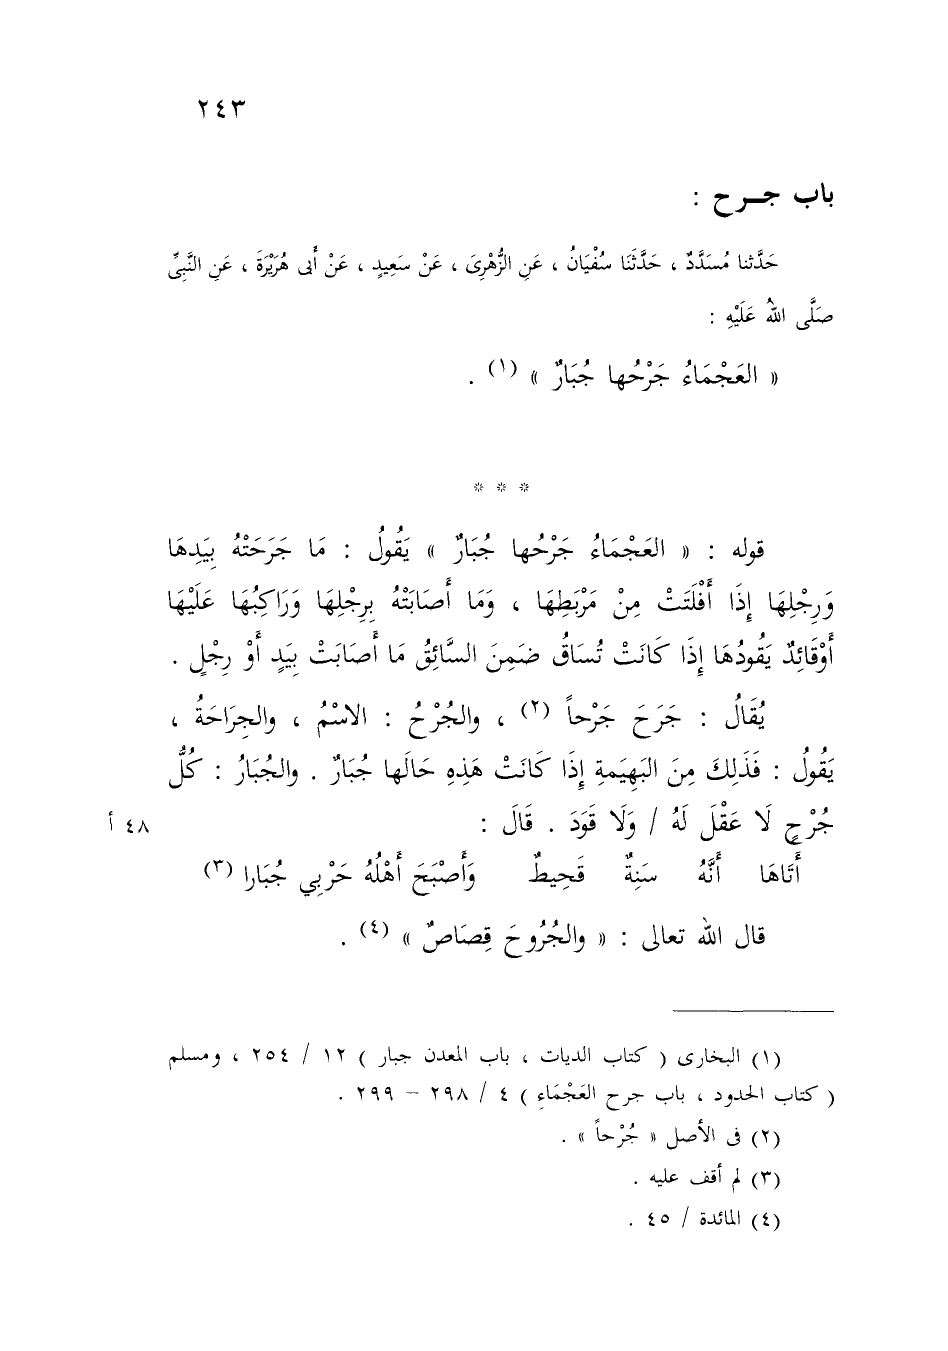 ٢٤٣
باب جـرح :
حَدَّثنا مُسَدَّدٌ ، حَدَّثَنَا سُفْيَانُ ، عَنِ الزُّهْرِىَ ، عَنْ سَعِيدٍ ، عَنْ أَبى هُرَيْرَةَ ، عَنِ النَّبِىِّ
صَلَّى اللهُ عَلَيْهِ :
« العَجْمَاءُ جَرْحُها جُبَارٌ » (١) .
* * *
قوله : « العَجْمَاءُ جَرْحُها جُبَارٌ » يَقُولُ : مَا جَرَحَتْهُ بِيَدِهَا
وَرِجْلِهَا إِذَا أَفْلَتَتْ مِنْ مَرْبَطِهَا ، وَمَا أَصَابَتْهُ بِرِجْلِهَا وَرَاكِبُهَا عَلَيْهَا
أَوْقَائِدٌ يَقُودُهَا إِذَا كَانَتْ تُسَاقُ ضَمِنَ السَّائِقُ مَا أَصَابَتْ بِيَدٍ أَوْ رِجْلٍ .
يُقَالُ : جَرَحَ جَرْحاً (٢) ، والجُرْحُ : الاسْمُ ، والجِرَاحَةُ ،
يَقُولُ : فَذَلِكَ مِنَ البَهِيَمةِ إِذَا كَانَتْ هَذِهِ حَالَها جُبَارٌ . والجُبَارُ : كُلُّ
جُرْحٍ لَا عَقْلَ لَهُ / وَلَا قَوَدَ . قَالَ : ٤٨ أ
أَتَاهَا أَنَّهُ سَنِةٌ قَحِيطٌ وَأَصْبَحَ أَهْلُهُ حَرْبِي جُبَارا (٣)
قال الله تعالى : « والجُرُوحَ قِصَاصٌ » (٤) .
(١) البخارى ( كتاب الديات ، باب المعدن جبار ) ١٢ / ٢٥٤ ، ومسلم
( كتاب الحدود ، باب جرح العَجْمَاءِ ) ٤ / ٢٩٨ – ٢٩٩ .
(٢) فى الأصل « جُرْحاً » .
(٣) لم أقف عليه .
(٤) المائدة / ٤٥ .